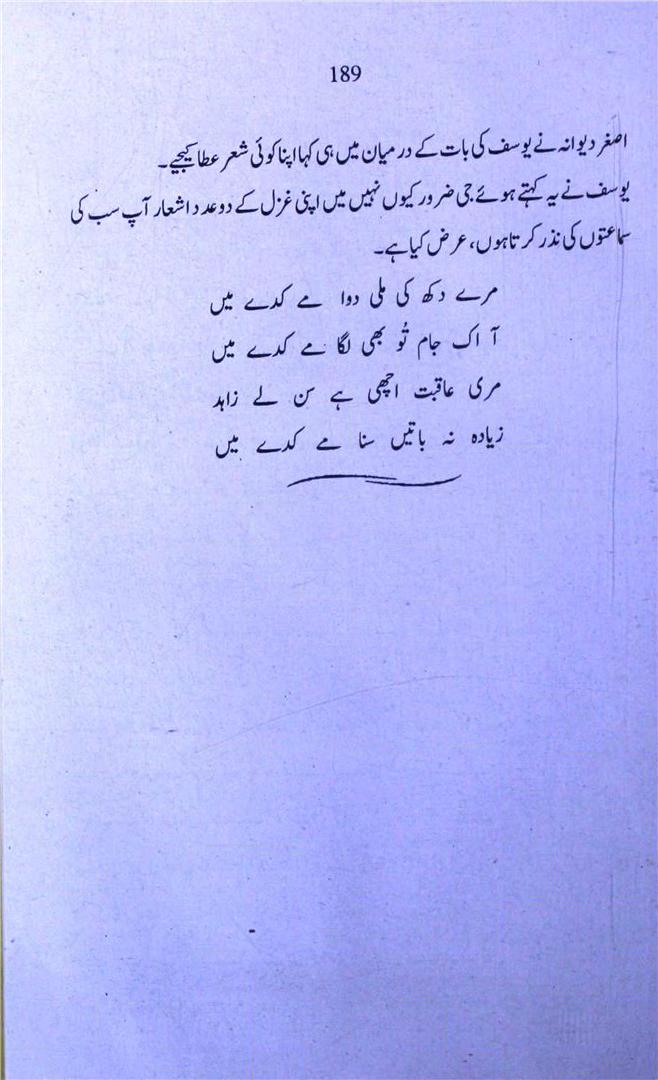 189
اصغر دیوانہ نے یوسف کی بات کے درمیان میں ہی کہا اپنا کوئی شعر عطا کیجیے۔
یوسف نے یہ کہتے ہوئے جی ضرور کیوں نہیں میں اپنی غزل کے دو عدد اشعار آپ سب کی
سماعتوں کی نذر کرتا ہوں، عرض کیا ہے۔
مرے دکھ کی ملی دوا مے کدے میں
آ اک جام تُو بھی لگا مے کدے میں
مری عاقبت اچھی ہے سن لے زاہد
زیادہ نہ باتیں سنا مے کدے میں